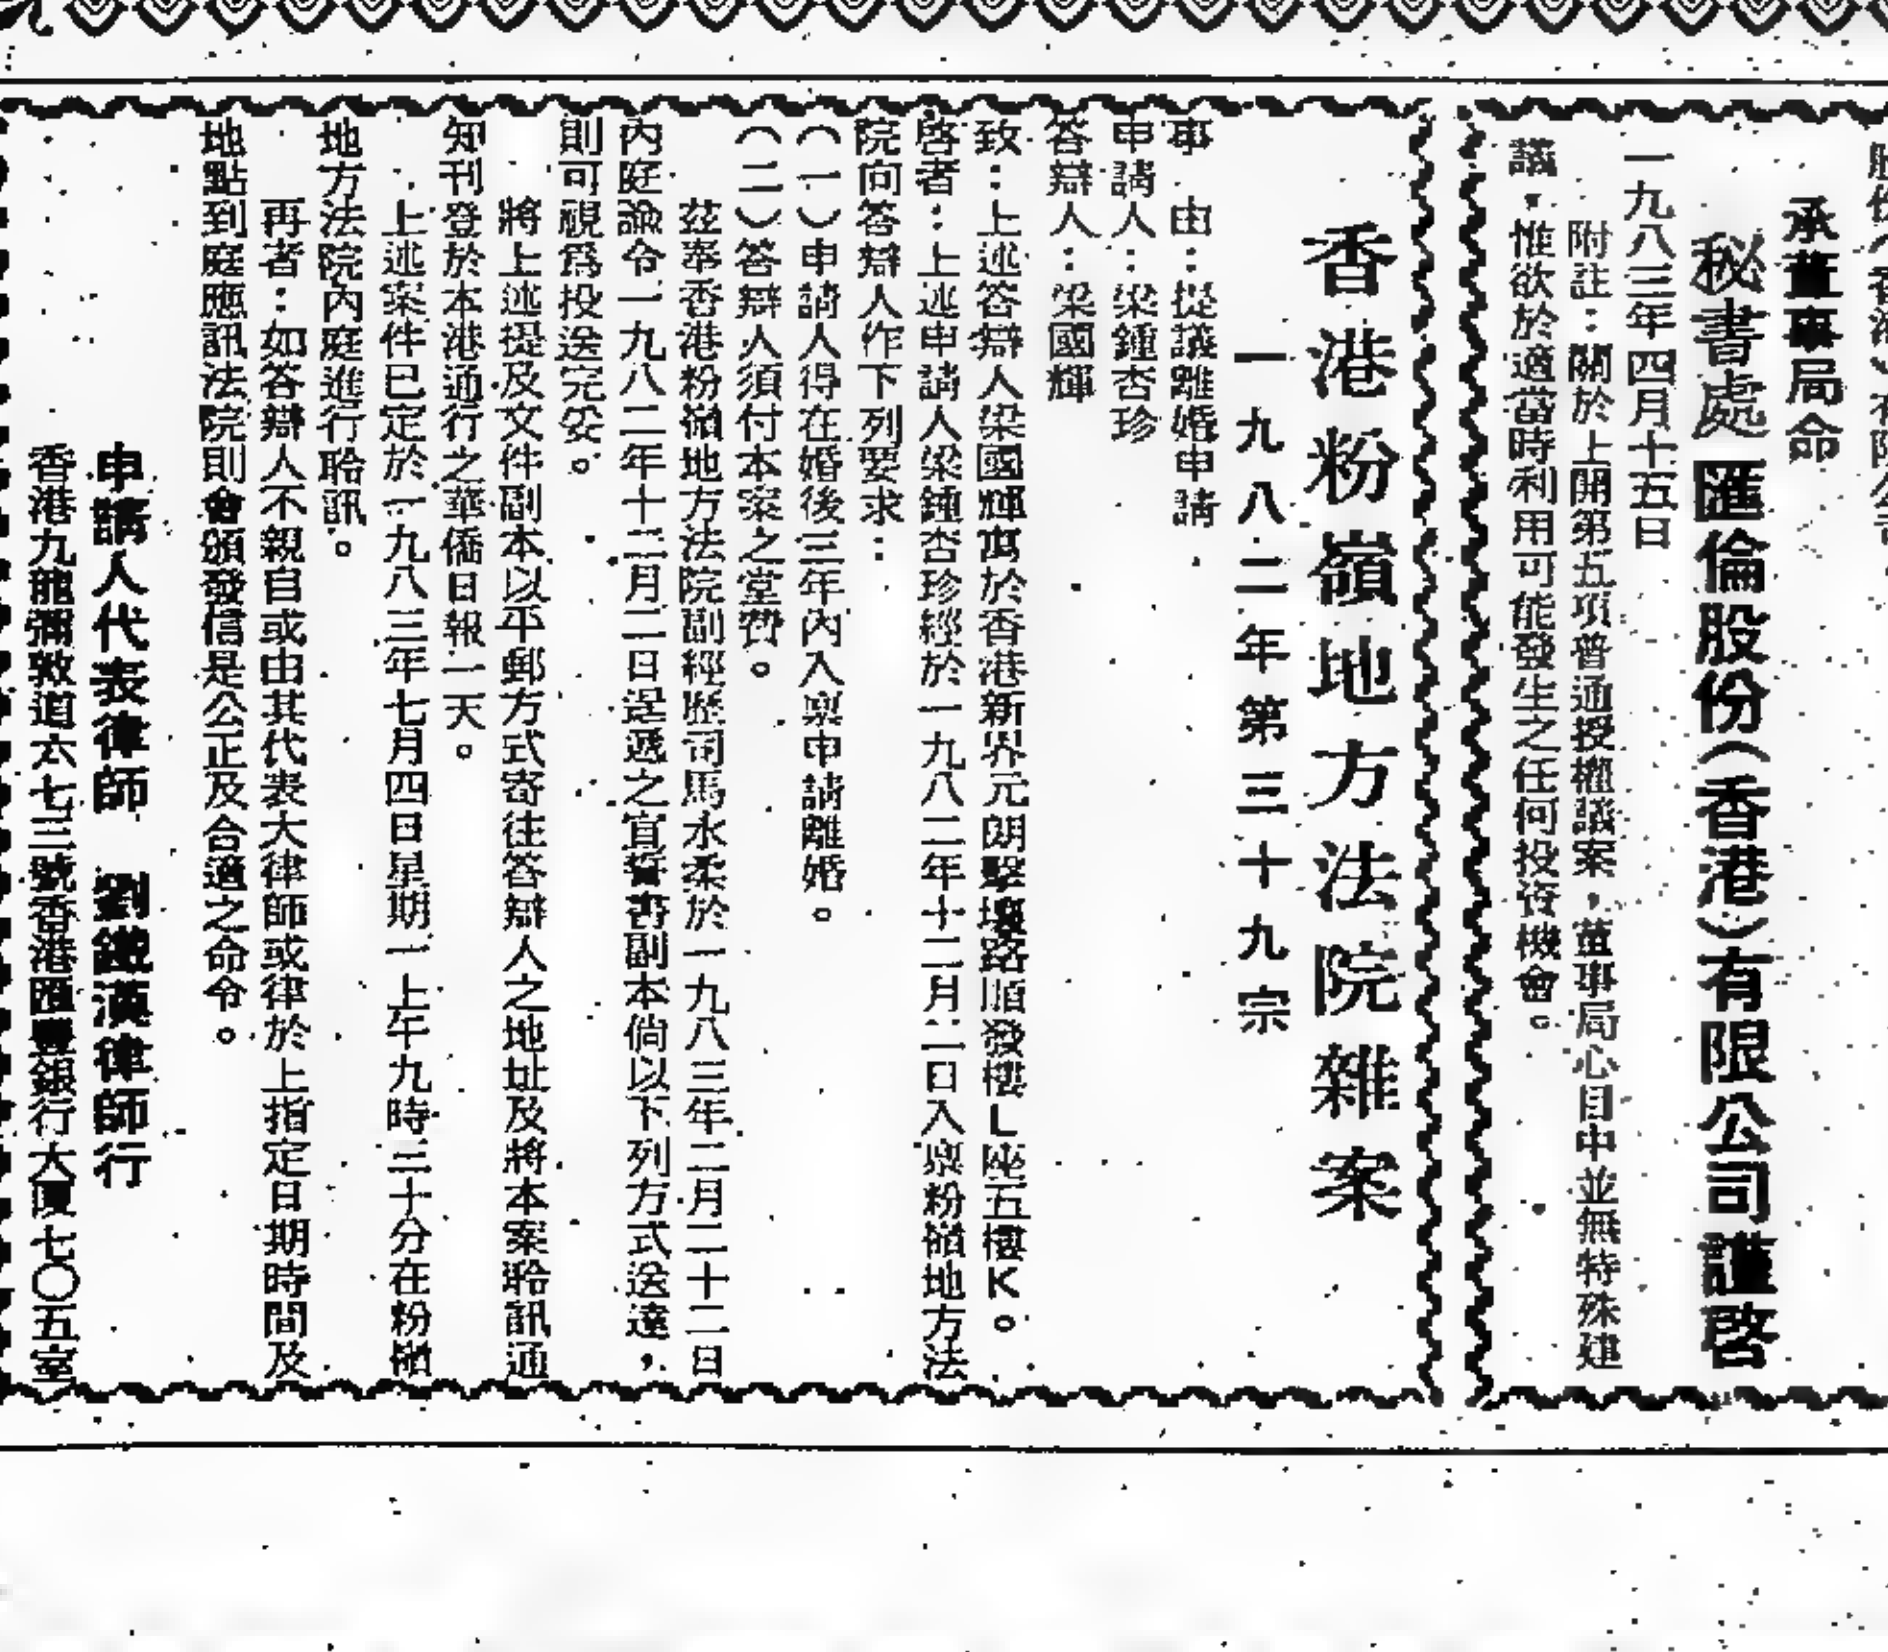 股份（香港）有限公司
承董事局命
秘書處匯倫股份（香港）有限公司謹啓
一九八三年四月十五日
附註：關於上開第五項普通授權議案，董事局心目中並無特殊建
議，惟欲於適當時利用可能發生之任何投資機會。
香港粉嶺地方法院雜案
一九八二年第三十九宗
事　由：提議離婚申請
申請人：梁鍾杏珍
答辯人：梁國輝
致：上述答辯人梁國輝寓於香港新界元朗擊壤路順發樓L座五樓K。
啓者：上述申請人梁鍾杏珍經於一九八二年十二月二日入禀粉嶺地方法
院向答辯人作下列要求：
（一）申請人得在婚後三年內入禀申請離婚。
（二）答辯人須付本案之堂費。
茲奉香港粉嶺地方法院副經歷司馬水柔於一九八三年二月二十二日
內庭諭令一九八二年十二月二日逞遞之宣誓書副本倘以下列方式送達，
則可視爲投送完妥。
將上述提及文件副本以平郵方式寄往答辯人之地址及將本案聆訊通
知刊登於本港通行之華僑日報一天。
上述案件已定於一九八三年七月四日星期一上午九時三十分在粉嶺
地方法院內庭進行聆訊。
再者：如答辯人不親自或由其代表大律師或律於上指定日期時間及
地點到庭應訊法院則會頒發信是公正及合適之命令。
申請人代表律師　劉鐵漢律師行
香港九龍彌敦道六七三號香港匯豐銀行大厦七〇五室